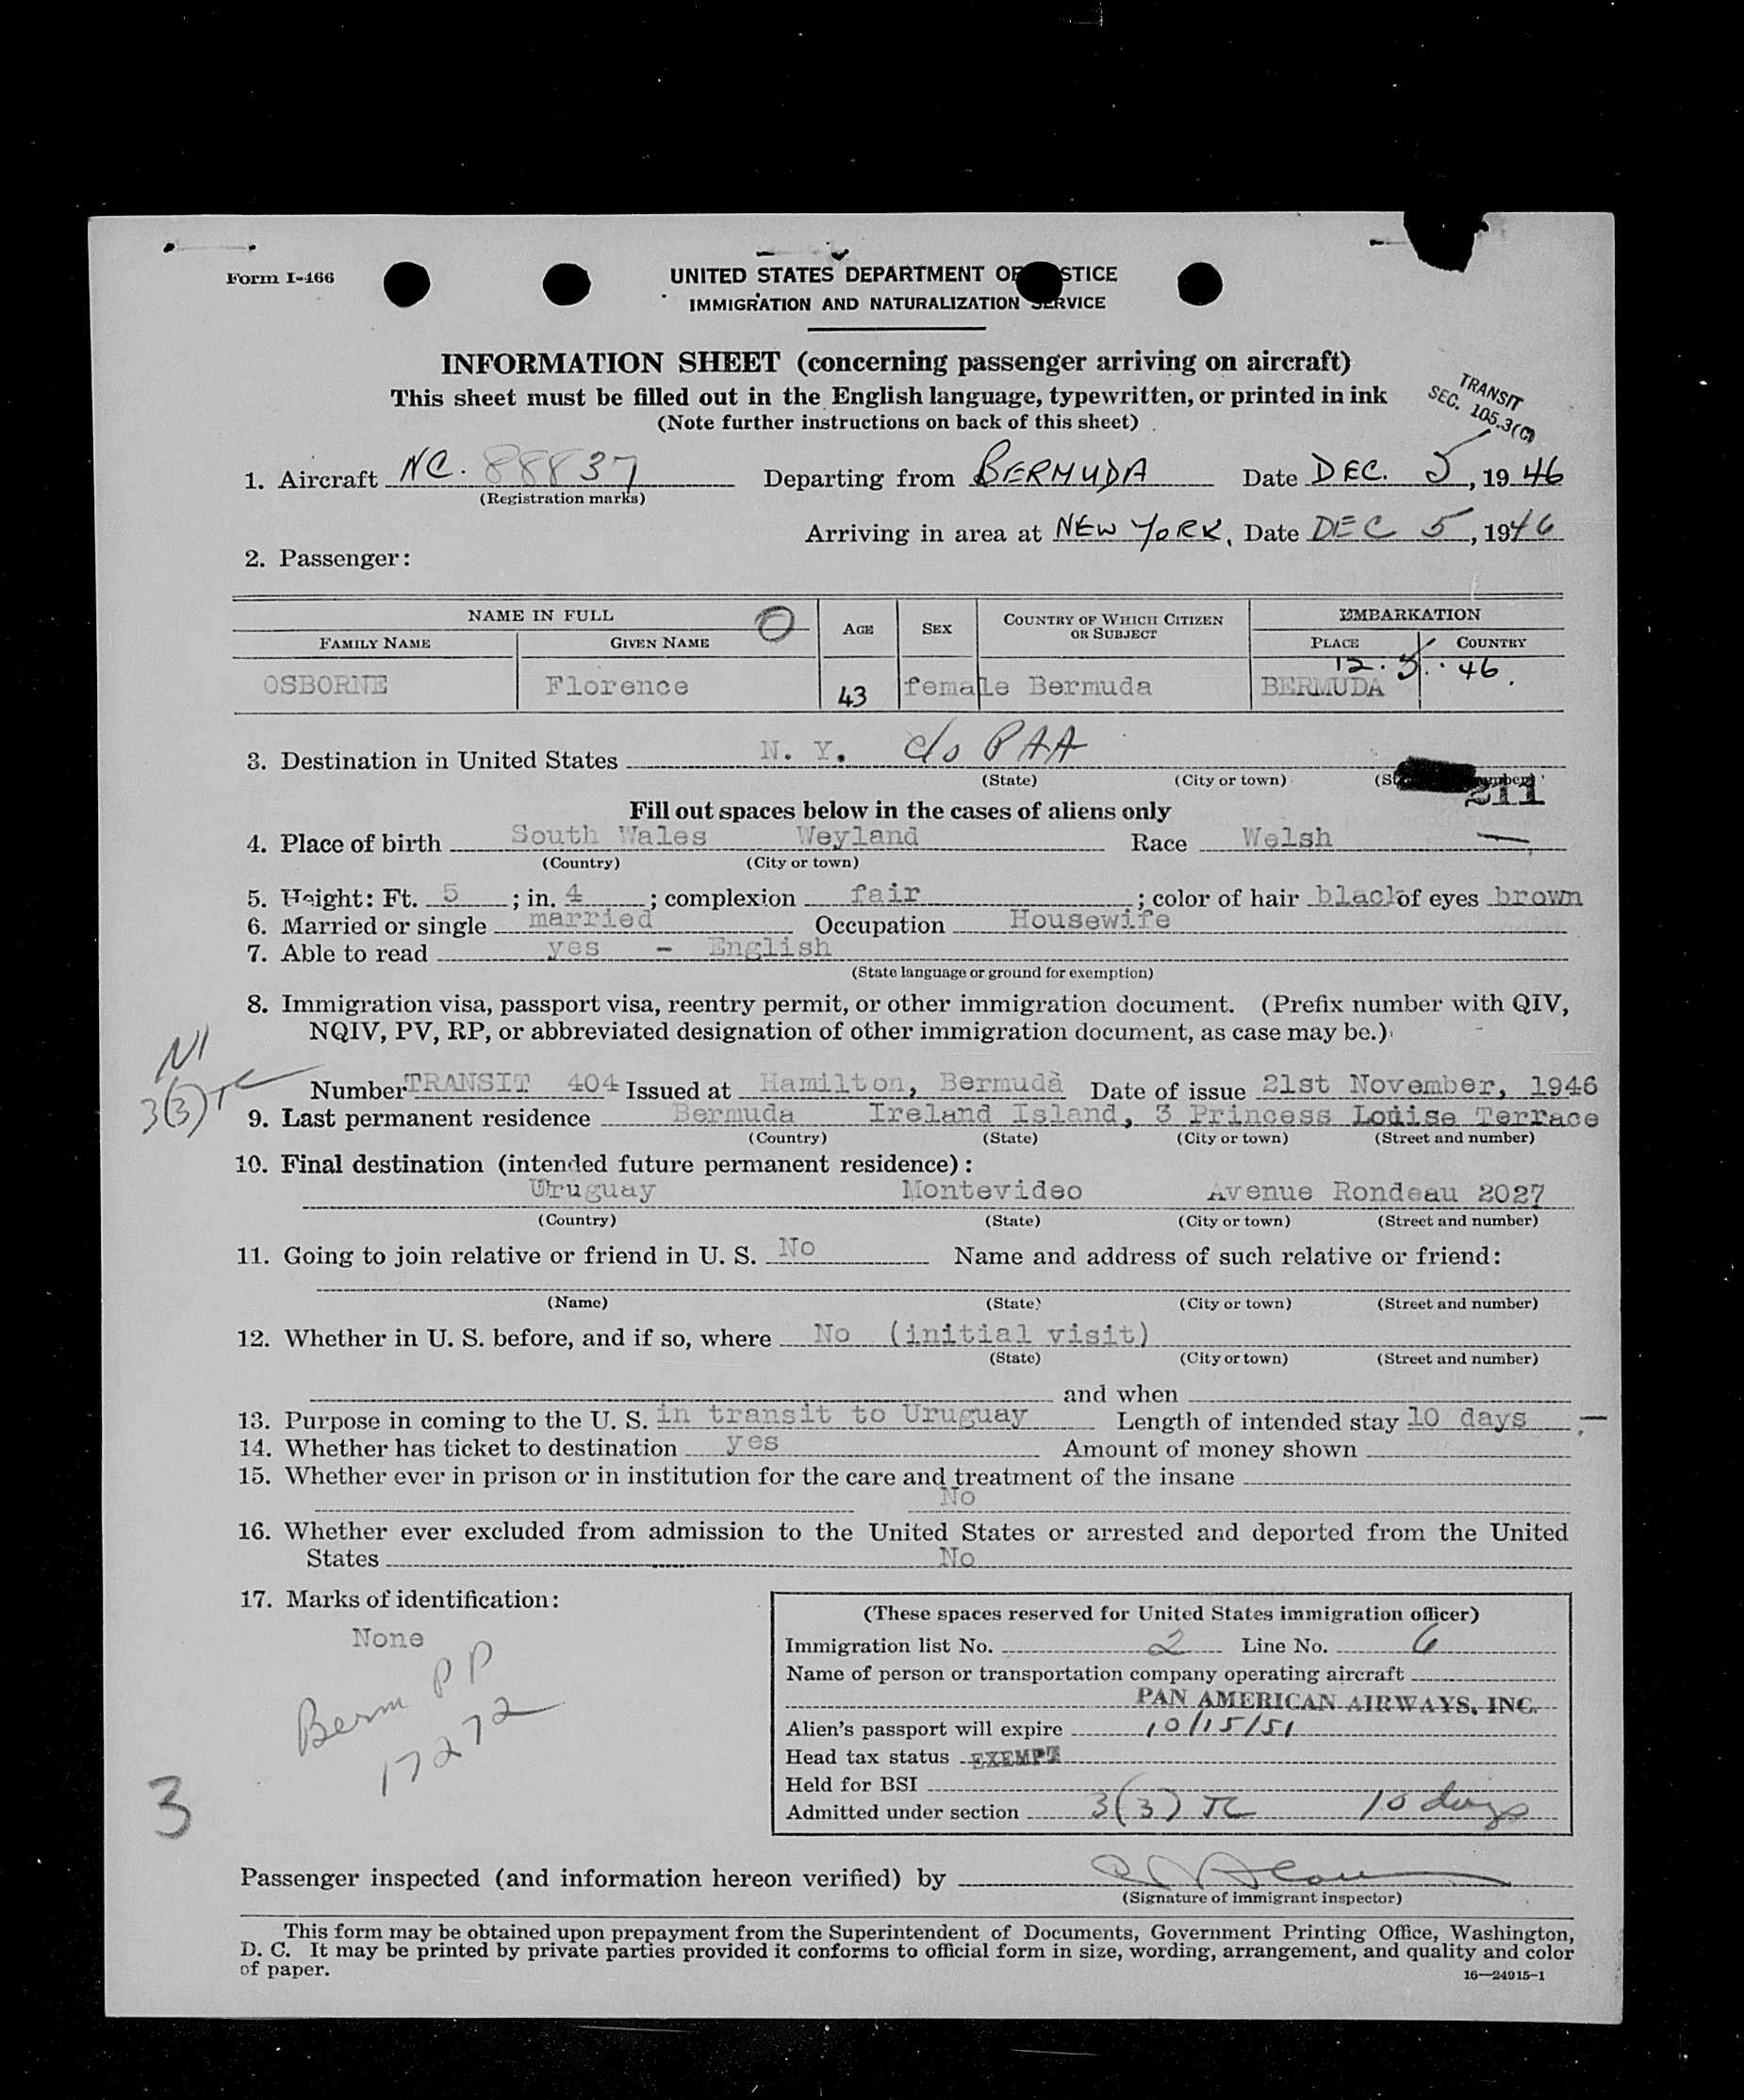 Form I-466
UNITED STATES DEPARTMENT OF STICE
IMMIGRATION AND NATURALIZATION SERVICE
INFORMATION SHEET (concerning passenger arriving on aircraft)
This sheet must be filled out in the English language, typewritten, or printed in ink
(Note further instructions on back of this sheet)
TRANSIT
SEC. 105.3(C)
1. Aircraft NC. 88837 Departing from BERMUDA Date DEC. 5, 1946
(Registration marks)
Arriving in area at NEW YORK, Date DEC 5, 1946
2. Passenger:
NAME IN FULL AGE SEX COUNTRY OF WHICH CITIZEN OR SUBJECT EMBARKATION
FAMILY NAME GIVEN NAME PLACE COUNTRY
12. 5. 46.
OSBORNE Florence 43 female Bermuda BERMUDA
3. Destination in United States N. Y. c/o PAA
(State) (City or town)
211
Fill out spaces below in the cases of aliens only
4. Place of birth South Wales Weyland Race Welsh
(Country) (City or town)
5. Height: Ft. 5; in. 4; complexion fair; color of hair black of eyes brown
6. Married or single married Occupation Housewife
7. Able to read yes - English
(State language or ground for exemption)
8. Immigration visa, passport visa, reentry permit, or other immigration document. (Prefix number with QIV,
NQIV, PV, RP, or abbreviated designation of other immigration document, as case may be.)
NI
3(3) TC
Number TRANSIT 404 Issued at Hamilton, Bermuda Date of issue 21st November, 1946
9. Last permanent residence Bermuda Ireland Island, 3 Princess Louise Terrace
(Country) (State) (City or town) (Street and number)
10. Final destination (intended future permanent residence):
Uruguay Montevideo Avenue Rondeau 2027
(Country) (State) (City or town) (Street and number)
11. Going to join relative or friend in U. S. No Name and address of such relative or friend:
(Name) (State) (City or town) (Street and number)
12. Whether in U. S. before, and if so, where No (initial visit)
(State) (City or town) (Street and number)
and when
13. Purpose in coming to the U. S. in transit to Uruguay Length of intended stay 10 days
14. Whether has ticket to destination yes Amount of money shown
15. Whether ever in prison or in institution for the care and treatment of the insane
No
16. Whether ever excluded from admission to the United States or arrested and deported from the United
States No
17. Marks of identification:
None
Berm PP
17272
3
(These spaces reserved for United States immigration officer)
Immigration list No. 2 Line No. 6
Name of person or transportation company operating aircraft
PAN AMERICAN AIRWAYS, INC.
Alien's passport will expire 10/15/51
Head tax status EXEMPT
Held for BSI
Admitted under section 3(3) TC 10 days
Passenger inspected (and information hereon verified) by
(Signature of immigrant inspector)
This form may be obtained upon prepayment from the Superintendent of Documents, Government Printing Office, Washington,
D. C. It may be printed by private parties provided it conforms to official form in size, wording, arrangement, and quality and color
of paper.
16—24915-1